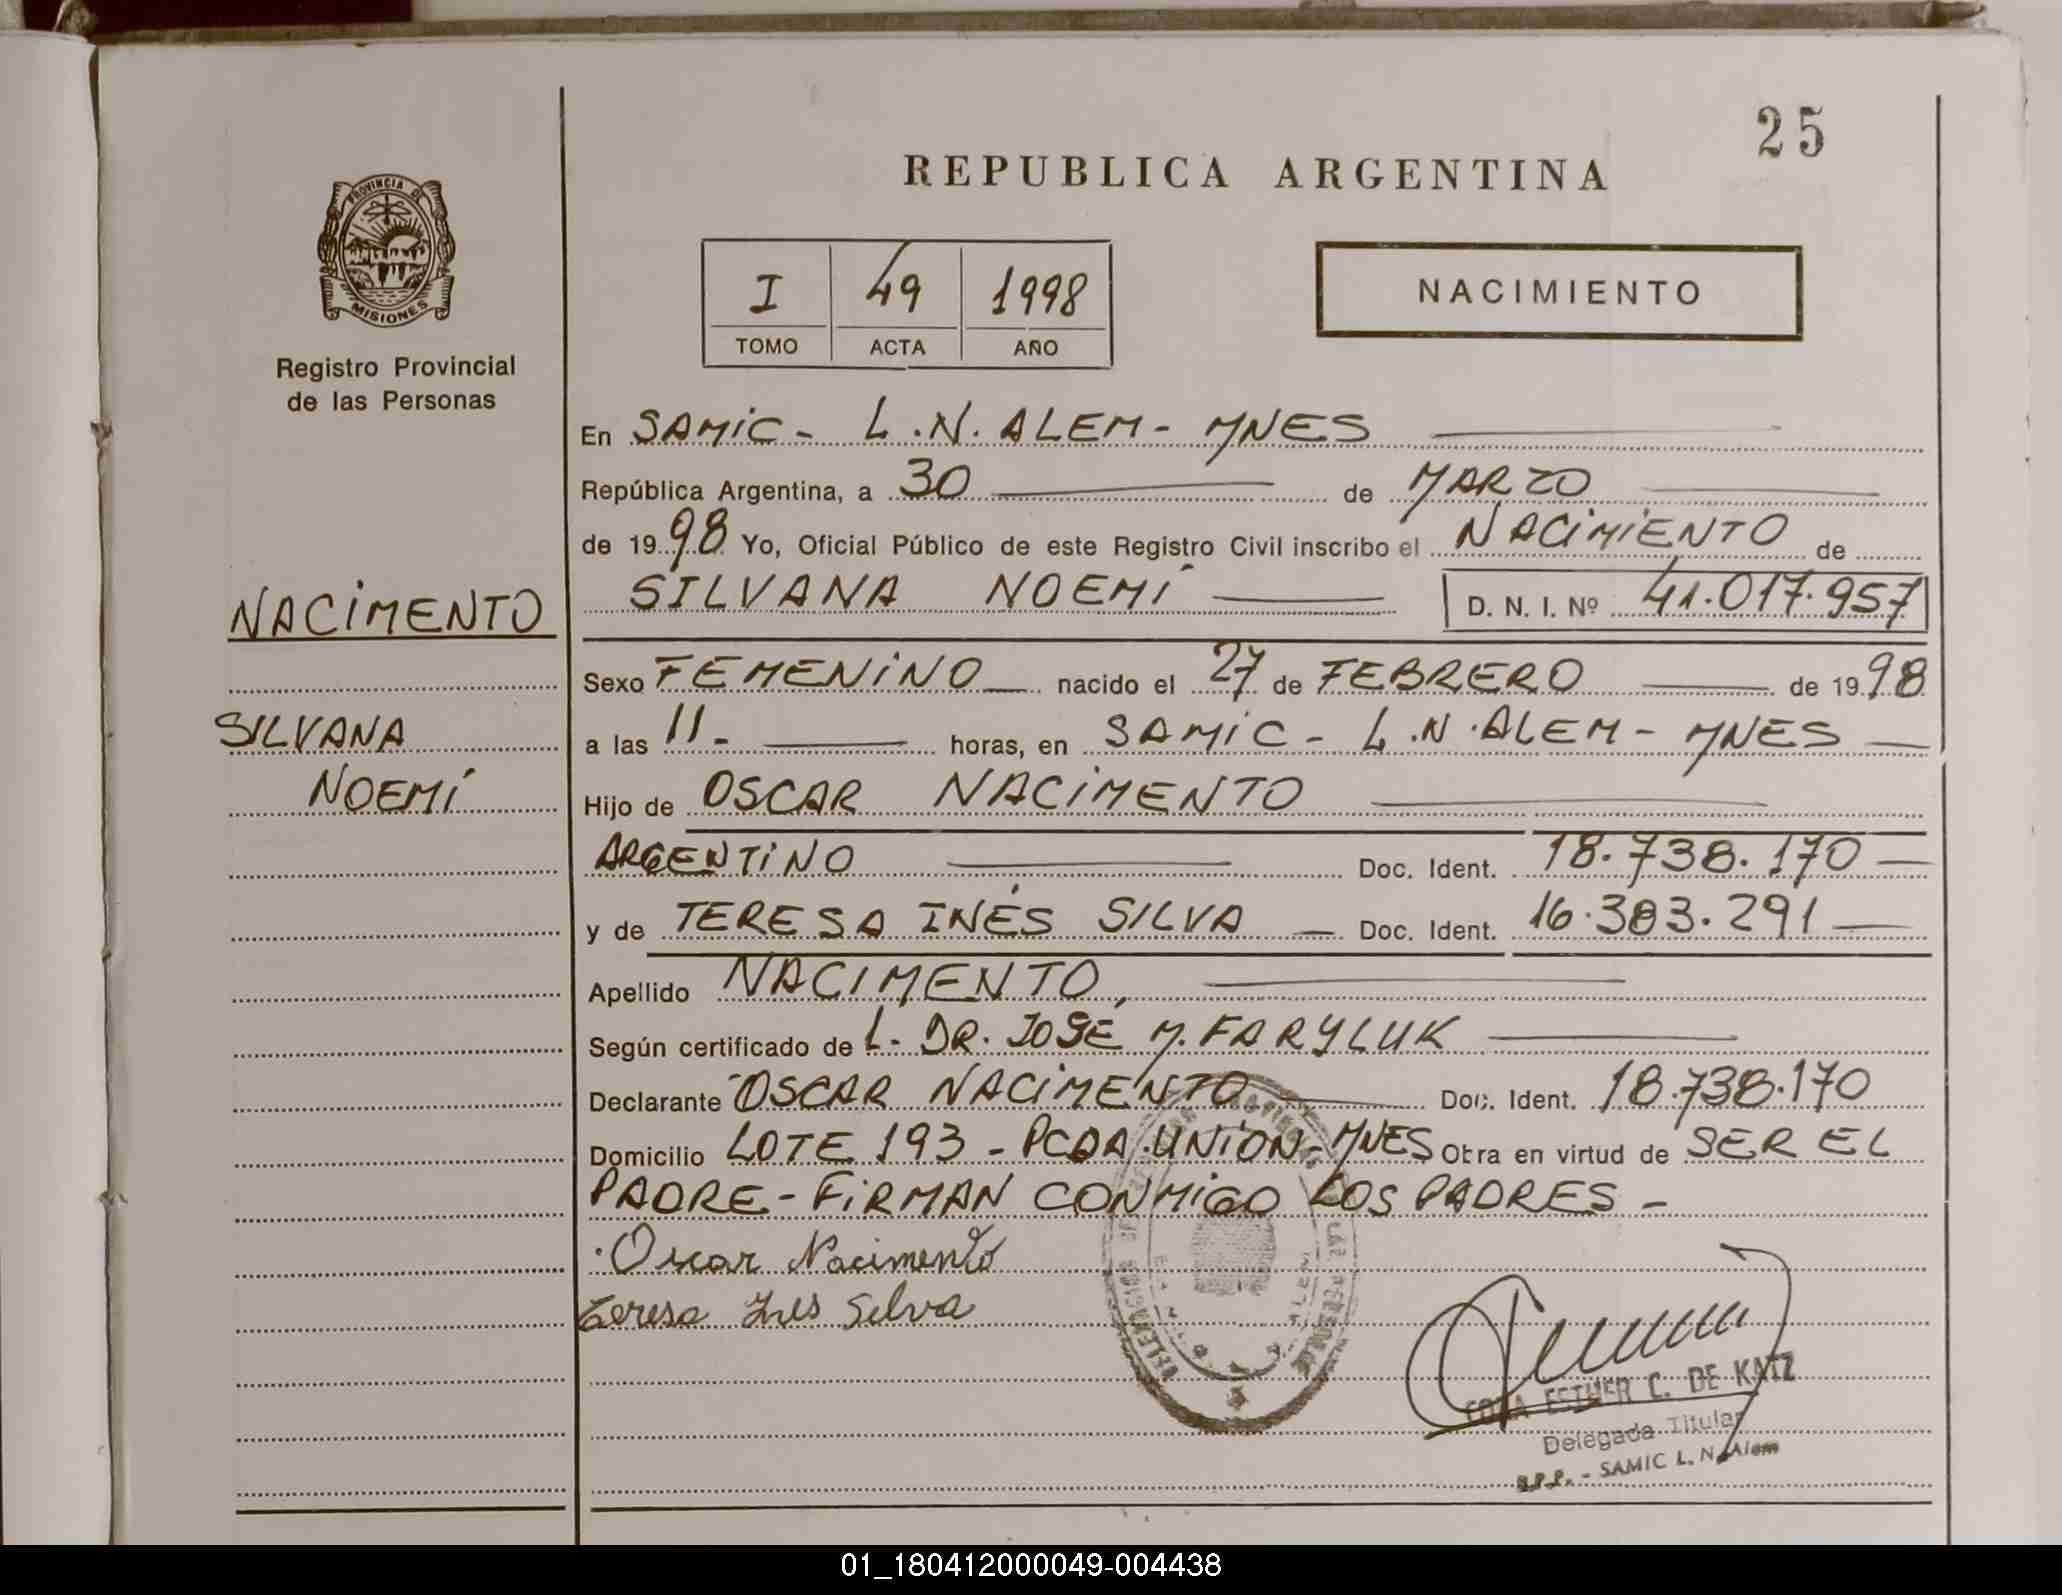 25
REPUBLICA ARGENTINA
PROVINCIA DE
MISIONES
Registro Provincial
de las Personas
I 49 1998
TOMO ACTA AÑO
NACIMIENTO
En SAMIC - L.N. ALEM - MNES
República Argentina, a 30 de MARZO
de 1998 Yo, Oficial Público de este Registro Civil inscribo el NACIMIENTO de
SILVANA NOEMÍ D. N. I. Nº 41.017.957
NACIMENTO
Sexo FEMENINO nacido el 27 de FEBRERO de 1998
SILVANA
a las 11.- horas, en SAMIC - L.N. ALEM - MNES
NOEMÍ
Hijo de OSCAR NACIMENTO
ARGENTINO Doc. Ident. 18.738.170
y de TERESA INÉS SILVA Doc. Ident. 16.383.291
Apellido NACIMENTO,
Según certificado de L. DR. JOSÉ M. FARYLUK
Declarante OSCAR NACIMENTO Doc. Ident. 18.738.170
Domicilio LOTE 193 - PCDA. UNION - MNES Obra en virtud de SER EL
PADRE - FIRMAN CONMIGO LOS PADRES -
Oscar Nacimento
Teresa Ines Silva
ESTHER C. DE KATZ
Delegada Titular
R.P.P. - SAMIC L. N. Alem
01_180412000049-004438